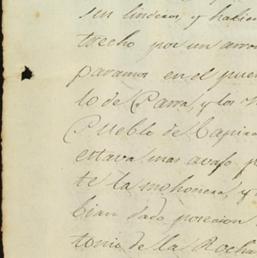 sin linderos, y habien
trecho por un arro
paramos en el pue
lo de Parra, y los
Pueblo de Tapixa
estava mas avajo, p
te la mohonera, y
bian dado posecion
tonio de la Rocha